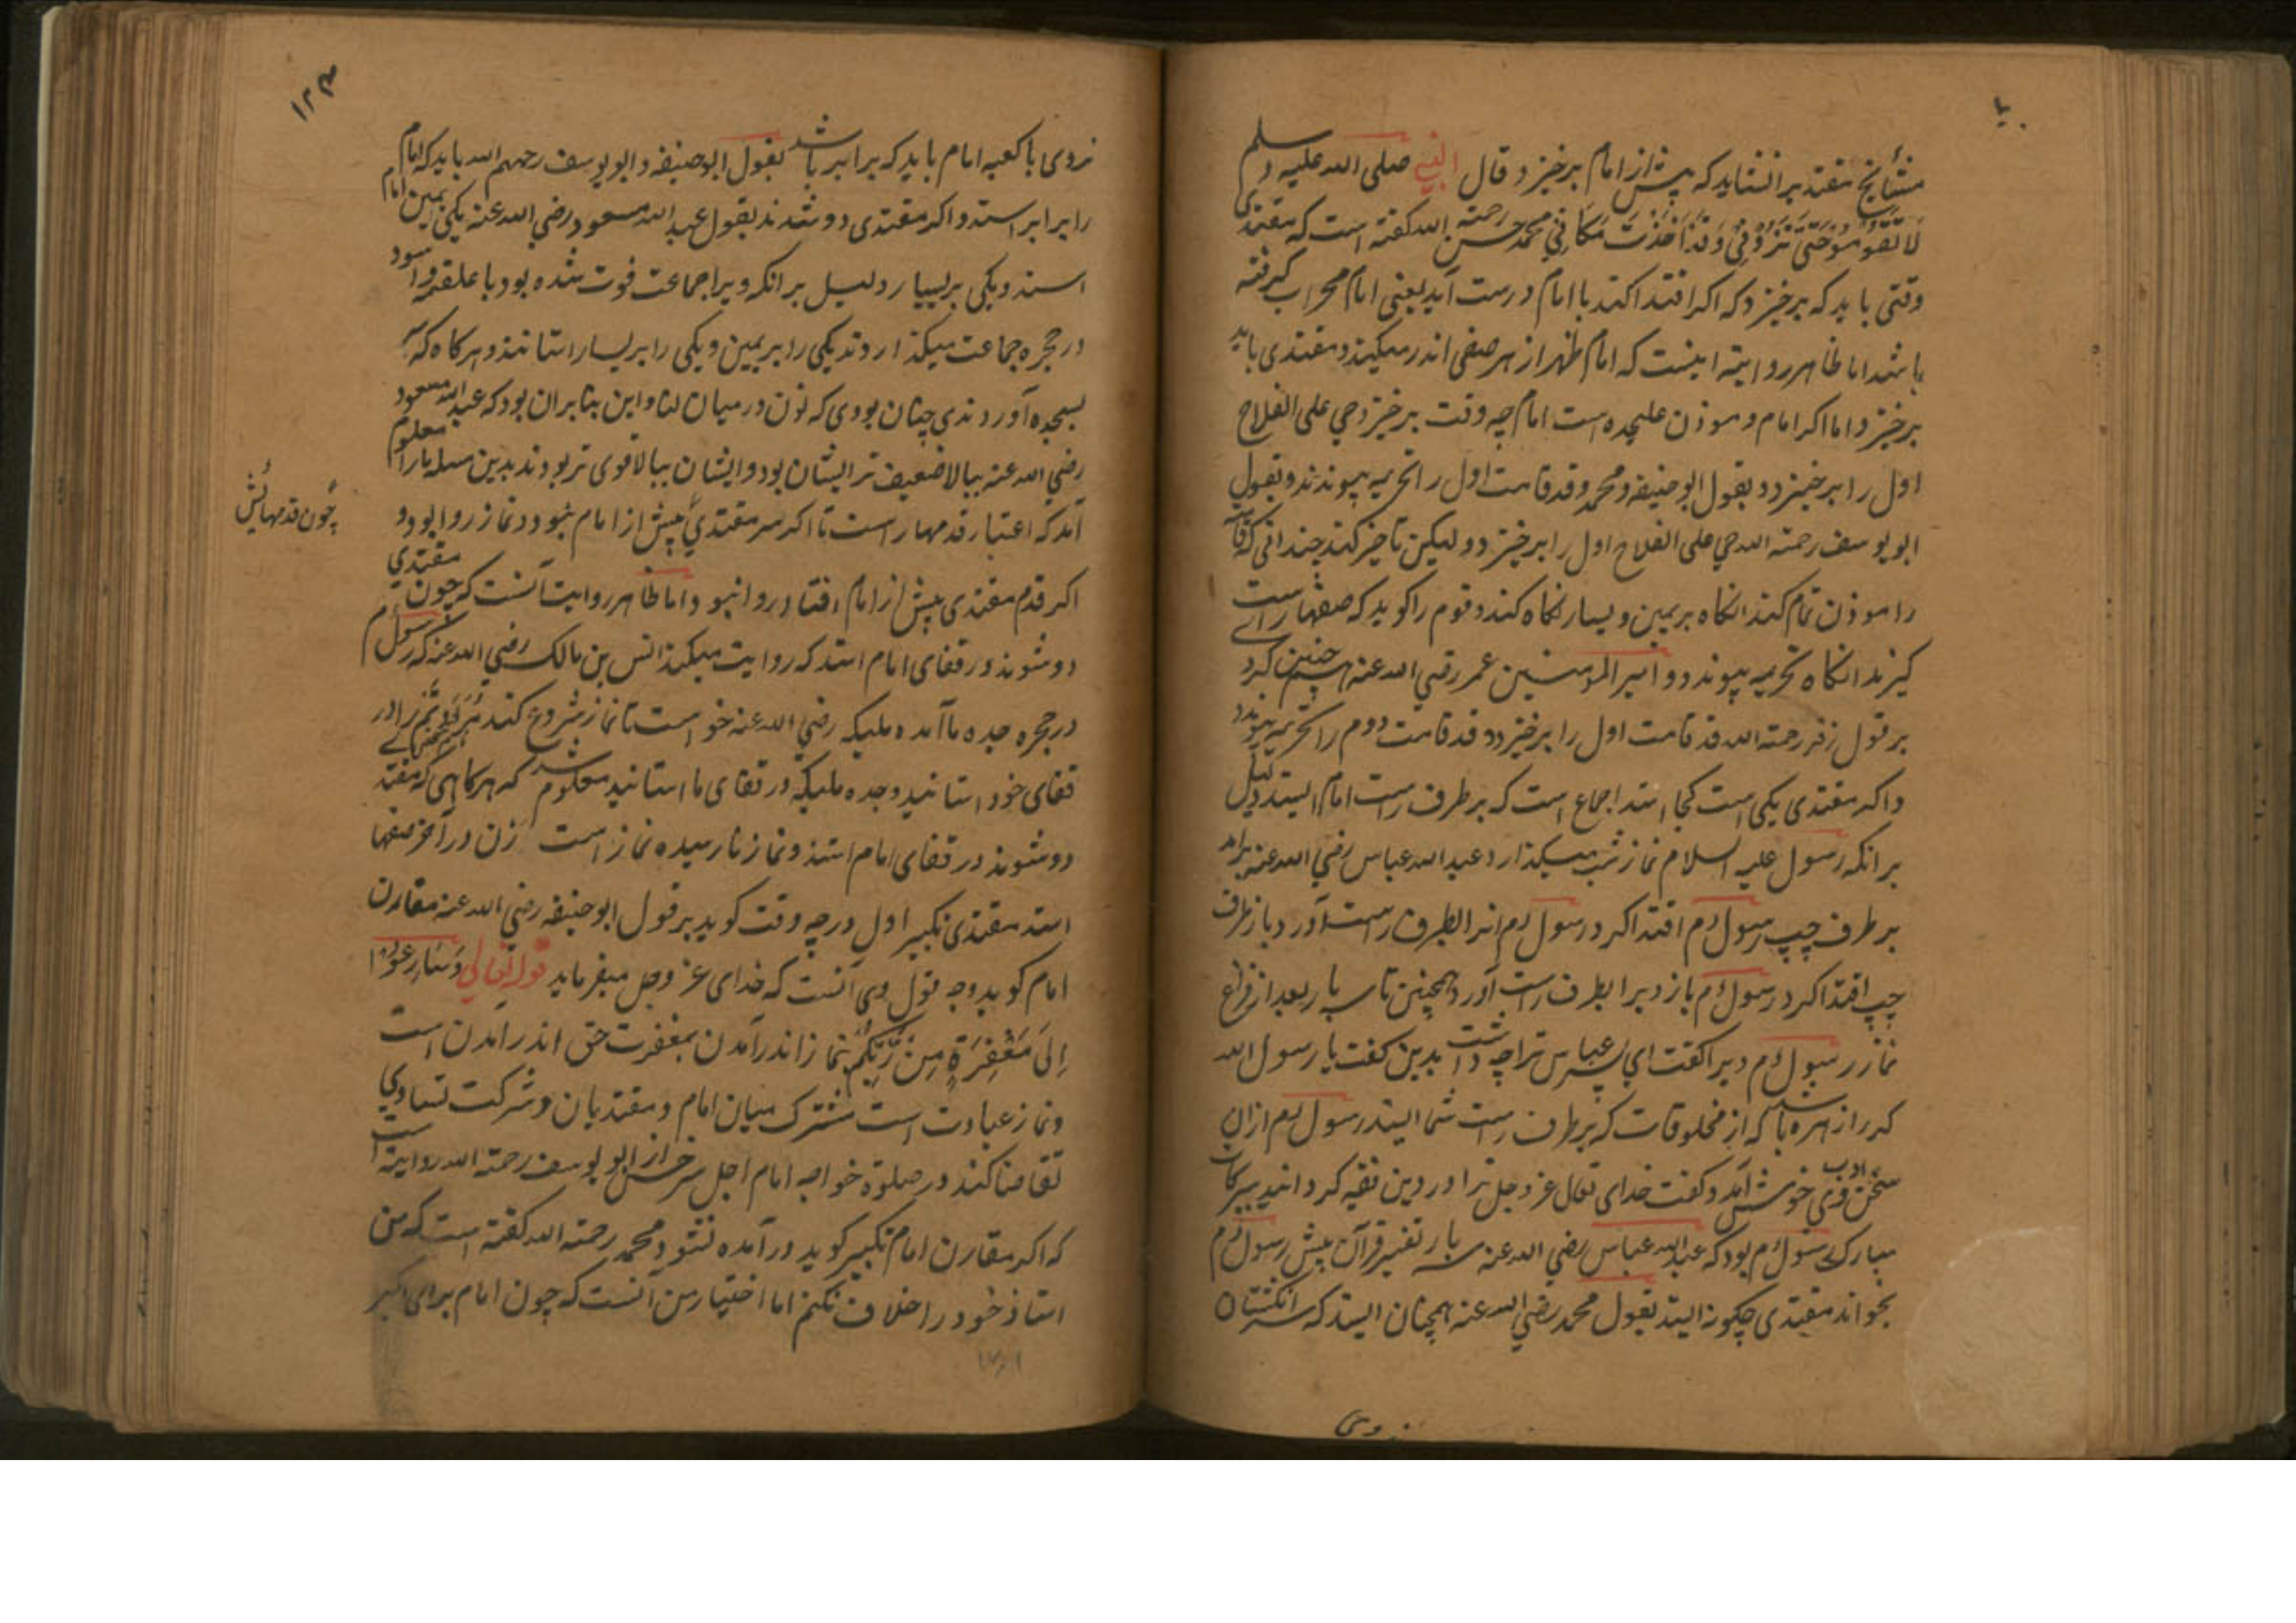 مشایخ مقتدیرا نشاید که پیش از امام برخیزد و قال النبي صلی الله علیه و سلم
لا تقوموا حتی تروني وقد اخذت مکاني محمد حسن رحمة الله گفته است که مقتدی
وقتی باید که برخیزد که اگر اقتدا کند با امام درست آید یعنی امام محراب گرفته
باشد اما ظاهر روایة اینست که امام ظهر از هر صفی اندر میکیذد مقتدی باید
برخیزد و اما اگر امام و موذن علیحده است امام چه وقت برخیزد حي علی الفلاح
اول را برخیزد و بقول ابو حنیفه و محمد و قد قامت اول را تحریمه پیوندند و بقول
ابو یوسف رحمة الله حي علی الفلاح اول را برخیزد و لیکن تاخیر کند چندانی که قامت
را موذن تمام کند انکاه بر یمین و یسار نکاه کند و قوم را کوید که صفها راست
کیرند انکاه تحریمه پیوندد و امیر المومنین عمر رضي الله عنه همچنین کرد
بر قول زفر رحمة الله قد قامت اول را برخیزد و قد قامت دوم را تحریمه پیوندد
و اکر مقتدی یکی است کجا استد اجماع است که بر طرف راست امام ایستد دلیل
بر انکه رسول علیه السلام نماز شب میکذارد عبد الله عباس رضي الله عنه بیامد
بر طرف چپ رسول م اقتدا کرد رسول م انرا بطرف راست آورد باز طرف
چپ اقتدا کرد رسول م باز ویرا بطرف راست آورد همچنین تا سه بار بعد از فراغ
نماز رسول م ویرا کفت ای پسر عباس ترا چه داشت بدین کفت یا رسول الله
کرا زهره باشد که از مخلوقات که بر طرف راست شما ایستد رسول م ازان
سخن ادب وی خوش آمد و کفت خدای تعالی عز و جل ترا در دین فقیه کرداند ببرکات
مبارک رسول م بود که عبد الله عباس رضي الله عنه سه بار تفسیر قرآن پیش رسول م
بخواند مقتدی چکونه ایستد بقول محمد رضي الله عنه همچنان ایستد که سر انکشتان
وی
۱۲۳
نزدوی با کعبه امام باید که برابر باشد بقول ابو حنیفه و ابو یوسف رحمهم الله باید که امام
را برابر استد و اکر مقتدی دو شدند بقول عبد الله مسعود رضي الله عنه یکی بیمین امام
استد و یکی بر یسار و دلیل بر انکه ویرا جماعت فوت شده بود با علقمه و اسود
در حجره جماعت میکذاردند یکی را بر یمین و یکی را بر یسار استانند و هر کاه که
بسجده آوردندی چنان بودی که نون در میان لنا و این بنا بران بود که عبد الله مسعود
رضي الله عنه ببالا ضعیف تر ایشان بود و ایشان ببالا قوی تر بودند بدین مسله ما را معلوم
آمد که اعتبار قدمها راست تا اکر سر مقتدي پیش از امام نبود و نماز روا بود و
چون قدمهایش
اکر قدم مقتدی پیش از امام افتاد روا نبود اما ظاهر روایت آنست که چون مقتدي
دو شوند در قفای امام استد که روایت میکند انس بن مالک رضي الله عنه که رسول م
در حجره جده ما آمده ملیکه رضي الله عنه خواست تا نماز شروع کند مرا و یتیم را در
قفای خود استانید و جده ملیکه در قفای ما استانید معلوم شد که هر کاهی که مقتدی
دو شوند در قفای امام استند و نماز نا رسیده نماز است زن در آخر صفها
استد مقتدی تکبیر اول در چه وقت کوید بر قول ابو حنیفه رضي الله عنه مقارن
امام کوید وجه قول وی آنست که خدای عز و جل میفرماید قوله تعالي وسارعوا
الی مغفرة من ربکم بنماز اندر آمدن بمغفرت حق اندر آمدن است
و نماز عبادت است مشترک میان امام و مقتدیان و شرکت تساوي
تقاضا کند در صلوة خواجه امام اجل سرخسی از ابو یوسف رحمة الله روایة است
که اکر مقارن امام تکبیر کوید در آمده نشود و محمد رحمة الله کفته است که من
استاذ خود را خلاف نکنم اما اختیار من آنست که چون امام برای اکبر